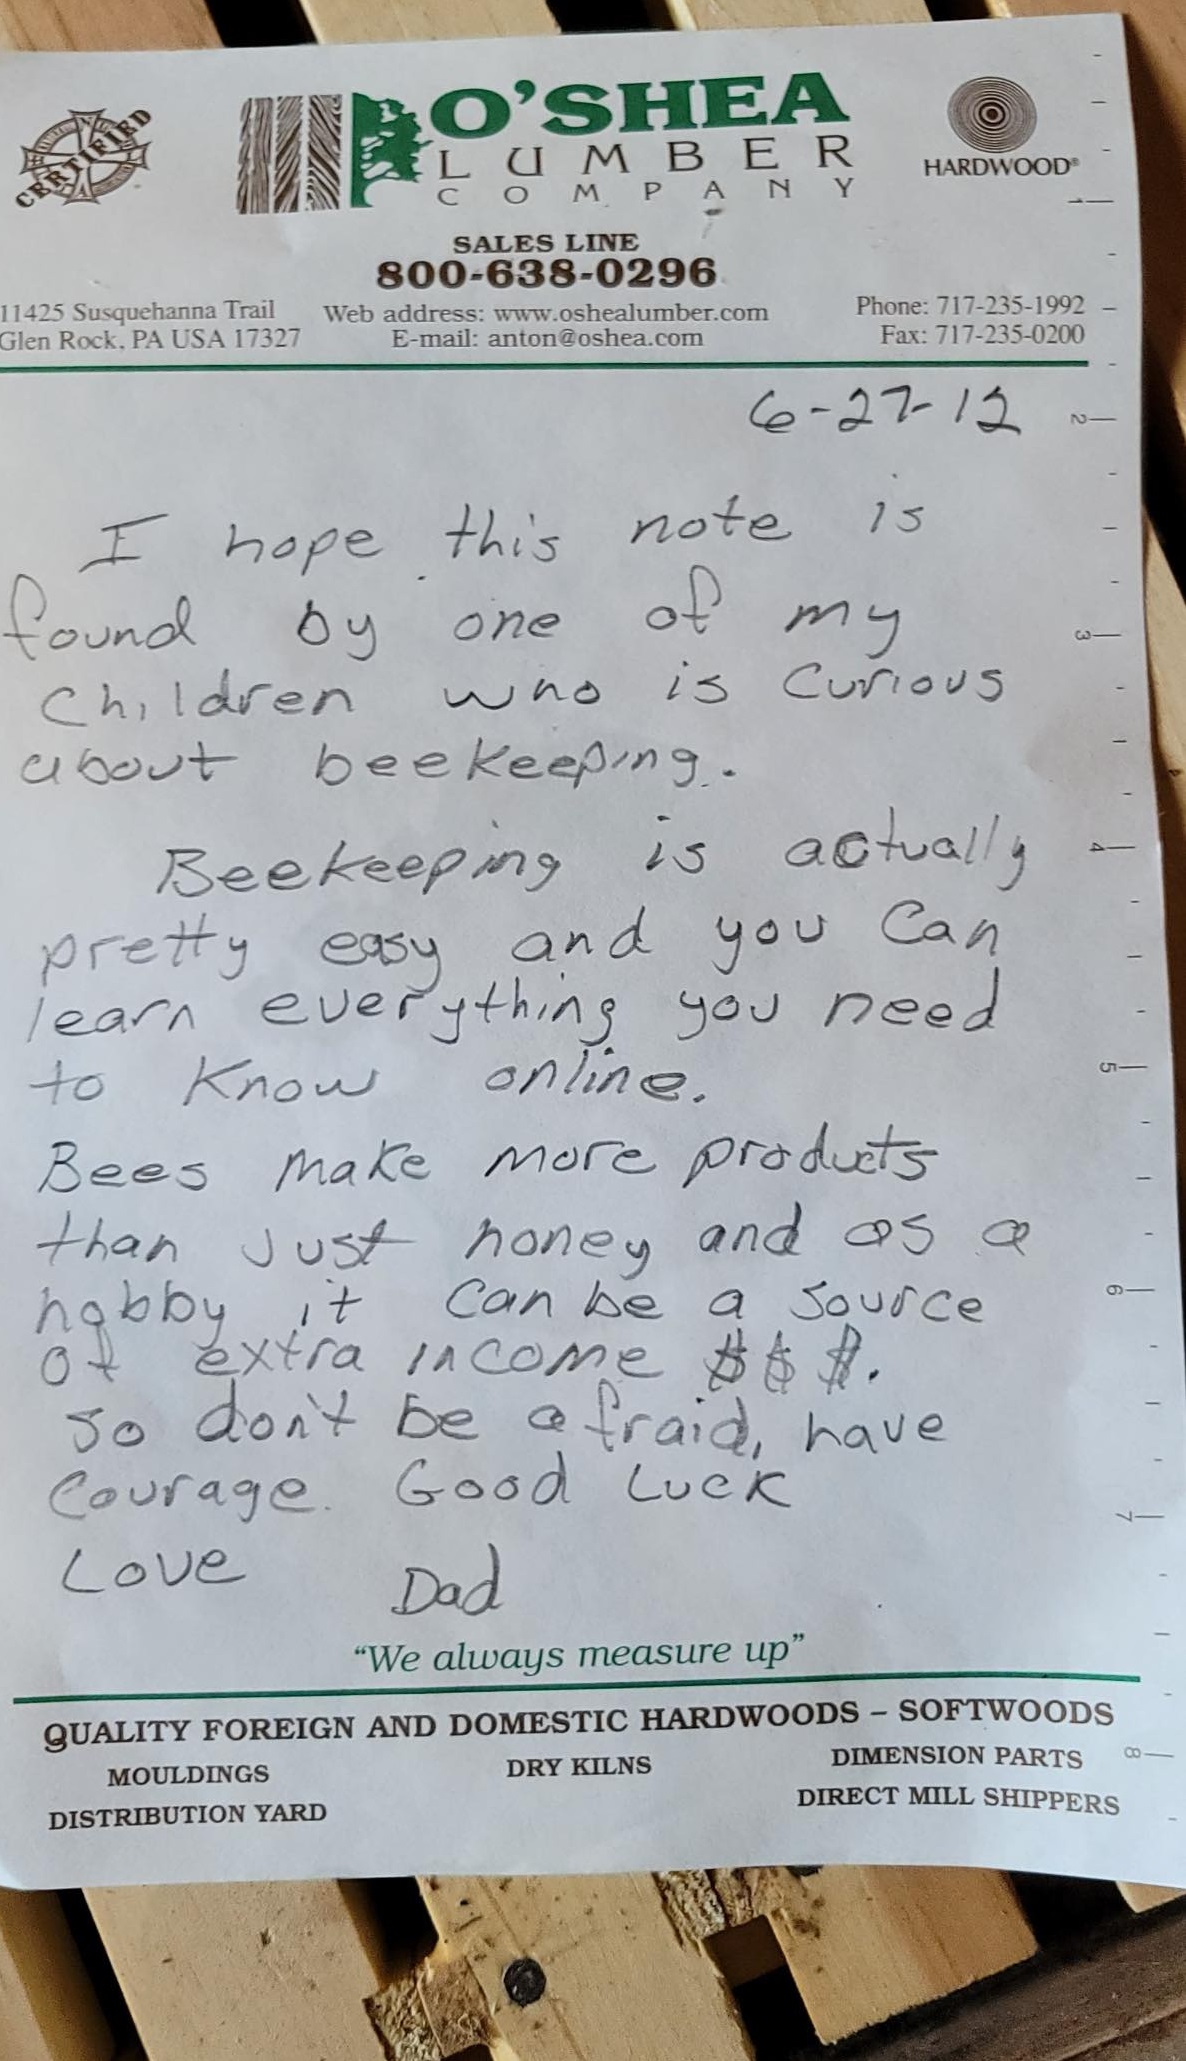 CERTIFIED
O'SHEA
LUMBER
COMPANY
HARDWOOD®
SALES LINE
800-638-0296
11425 Susquehanna Trail Web address: www.oshealumber.com Phone: 717-235-1992
Glen Rock, PA USA 17327 E-mail: anton@oshea.com Fax: 717-235-0200
6-27-12
I hope this note is
found by one of my
Children who is curious
about beekeeping.
Beekeeping is actually
pretty easy and you can
learn everything you need
to know online.
Bees make more products
than just honey and as a
hobby it can be a source
of extra income $$$.
So don't be afraid, have
courage. Good Luck
Love Dad
"We always measure up"
QUALITY FOREIGN AND DOMESTIC HARDWOODS – SOFTWOODS
MOULDINGS DRY KILNS DIMENSION PARTS
DISTRIBUTION YARD DIRECT MILL SHIPPERS
1
2
3
4
5
6
7
8